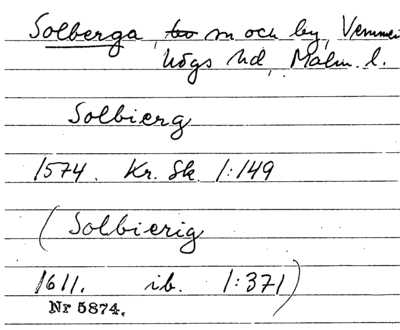 Solberga, sn och by, Vemmen
högs hd, Malm. l.
Solbierg
1574. Kr. Sk 1:149
(Solbierig
1611. ib. 1:371)
Nr 5874.